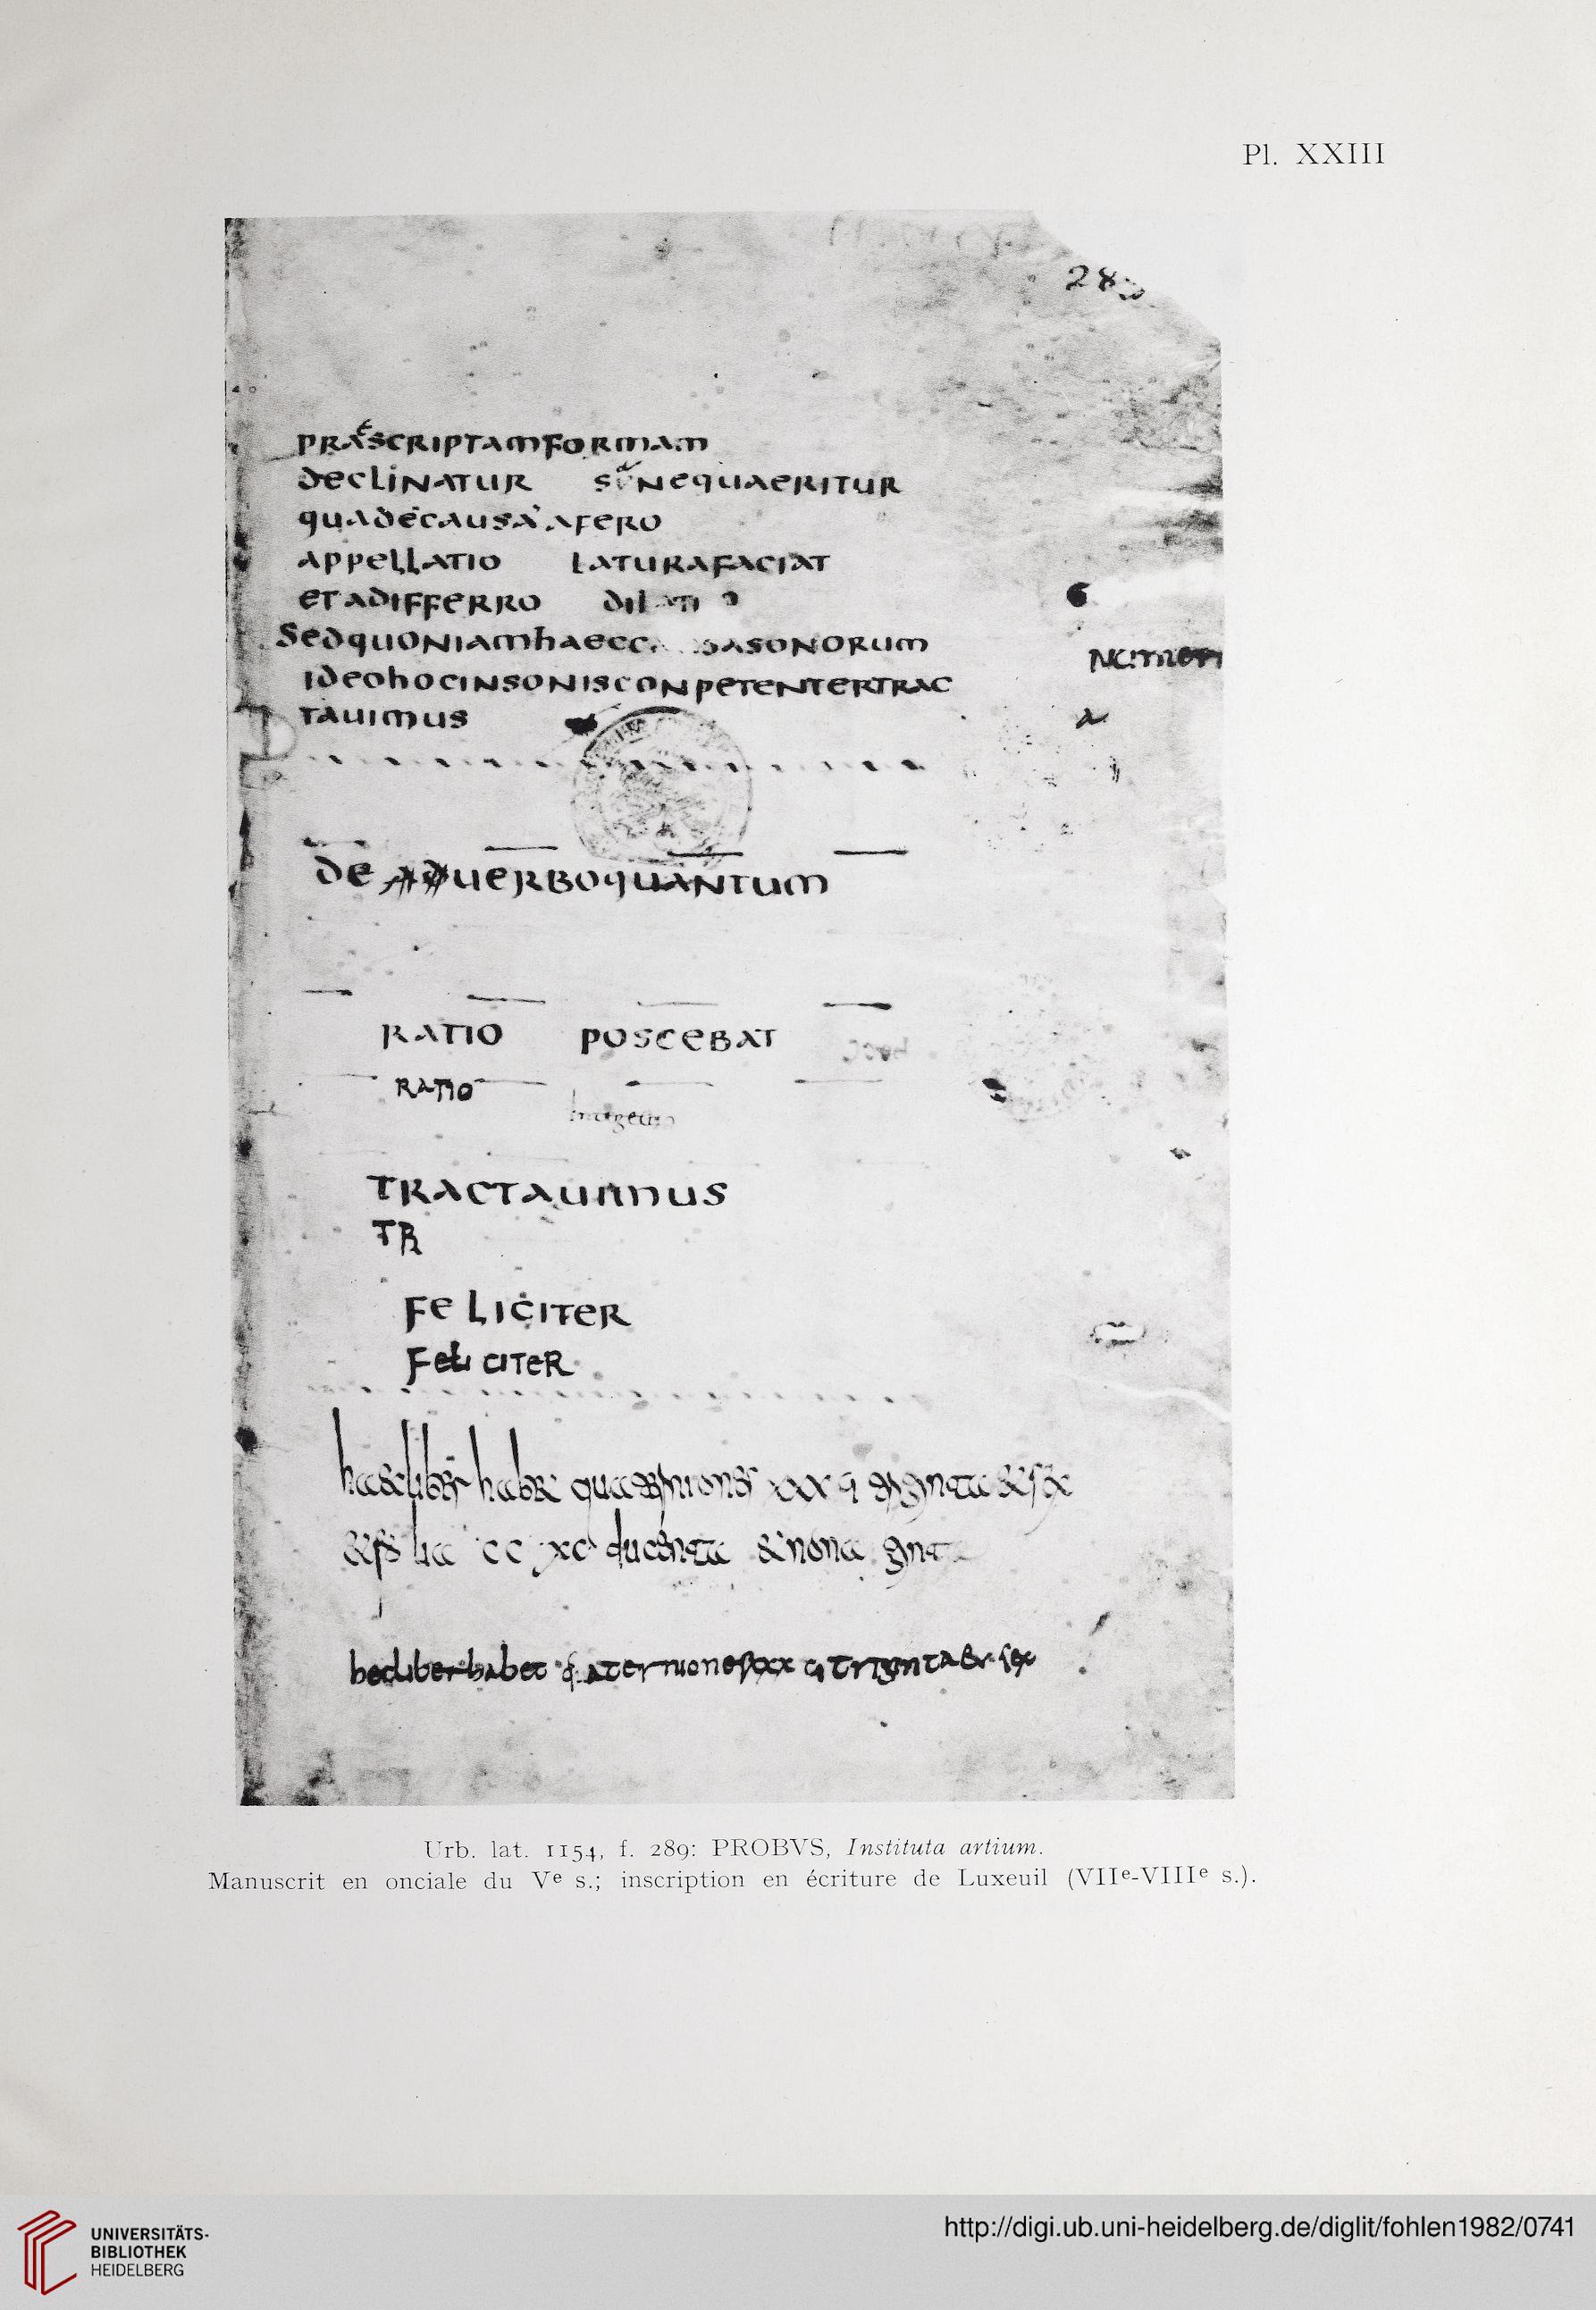 Pl. XXIII
PRAESCRIPTAMFORMAM
DECLINATUR SINEQUAERITUR
QUADECAUSAAFERO
APPELLATIO LATURAFACIAT
ETADIFFERRO
SEDQUONIAMHAEC SONORUM
IDEOHOCINSONISCONPETENTERTRAC
TAUIMUS
DE ADUERBOQUANTUM
RATIO POSCEBAT
RATIO
TRACTAUIMUS
TR
FELICITER
FELICITER
liber xxx
cc xc ducenta & nona
hecliber habet quaterniones xxx trignta & sex
Urb. lat. 1154, f. 289: PROBVS, Instituta artium.
Manuscrit en onciale du Ve s.; inscription en écriture de Luxeuil (VIIe-VIIIe s.).
UNIVERSITÄTS-
BIBLIOTHEK
HEIDELBERG
http://digi.ub.uni-heidelberg.de/diglit/fohlen1982/0741